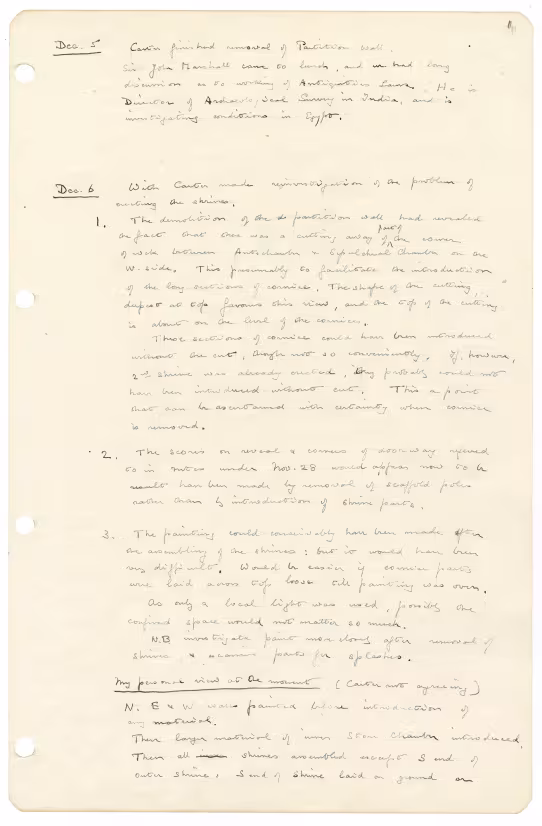 Dec. 5 Carter finished removal of Partition wall.
Sir John Marshall came to lunch, and we had long
discussion as to working of Antiquities Laws. He is
Director of Archaeological Survey in India, and is
investigating conditions in Egypt.
Dec. 6 With Carter made reinvestigation of the problem of
erecting the shrines.
1. The demolition of the partition wall had revealed
the fact that there was a cutting away of part of the corner
of rock between Antechamber & Sepulchral Chamber on the
W-side. This presumably to facilitate the introduction
of the long sections of cornice. The shape of the cutting,
deepest at top favours this view, and the top of the cutting
is about on the level of the cornices.
These sections of cornice could have been introduced
without the cut, though not so conveniently. If, however,
2nd shrine was already erected, they probably could not
have been introduced without cut. This a point
that can be ascertained with certainty when cornice
is removed.
2. The scores on reveal & corners of doorway referred
to in notes under Nov. 28 would appear now to be
result have been made by removal of scaffold poles
rather than by introduction of shrine parts.
3. The painting could conceivably have been made after
the assembling of the shrines: but it would have been
very difficult. Would be easier if cornice parts
were laid across top loose till painting was over.
As only a local light was used, possibly the
confined space would not matter so much.
N.B investigate paint more closely after removal of
shrines, & examine parts for splashes.
My personal view at the moment (Carter not agreeing)
N. E & W walls painted before introduction of
any material.
Then larger material of inner Store Chamber introduced.
Then all shrines assembled except S end of
outer shrine, S end of shrine laid on ground on